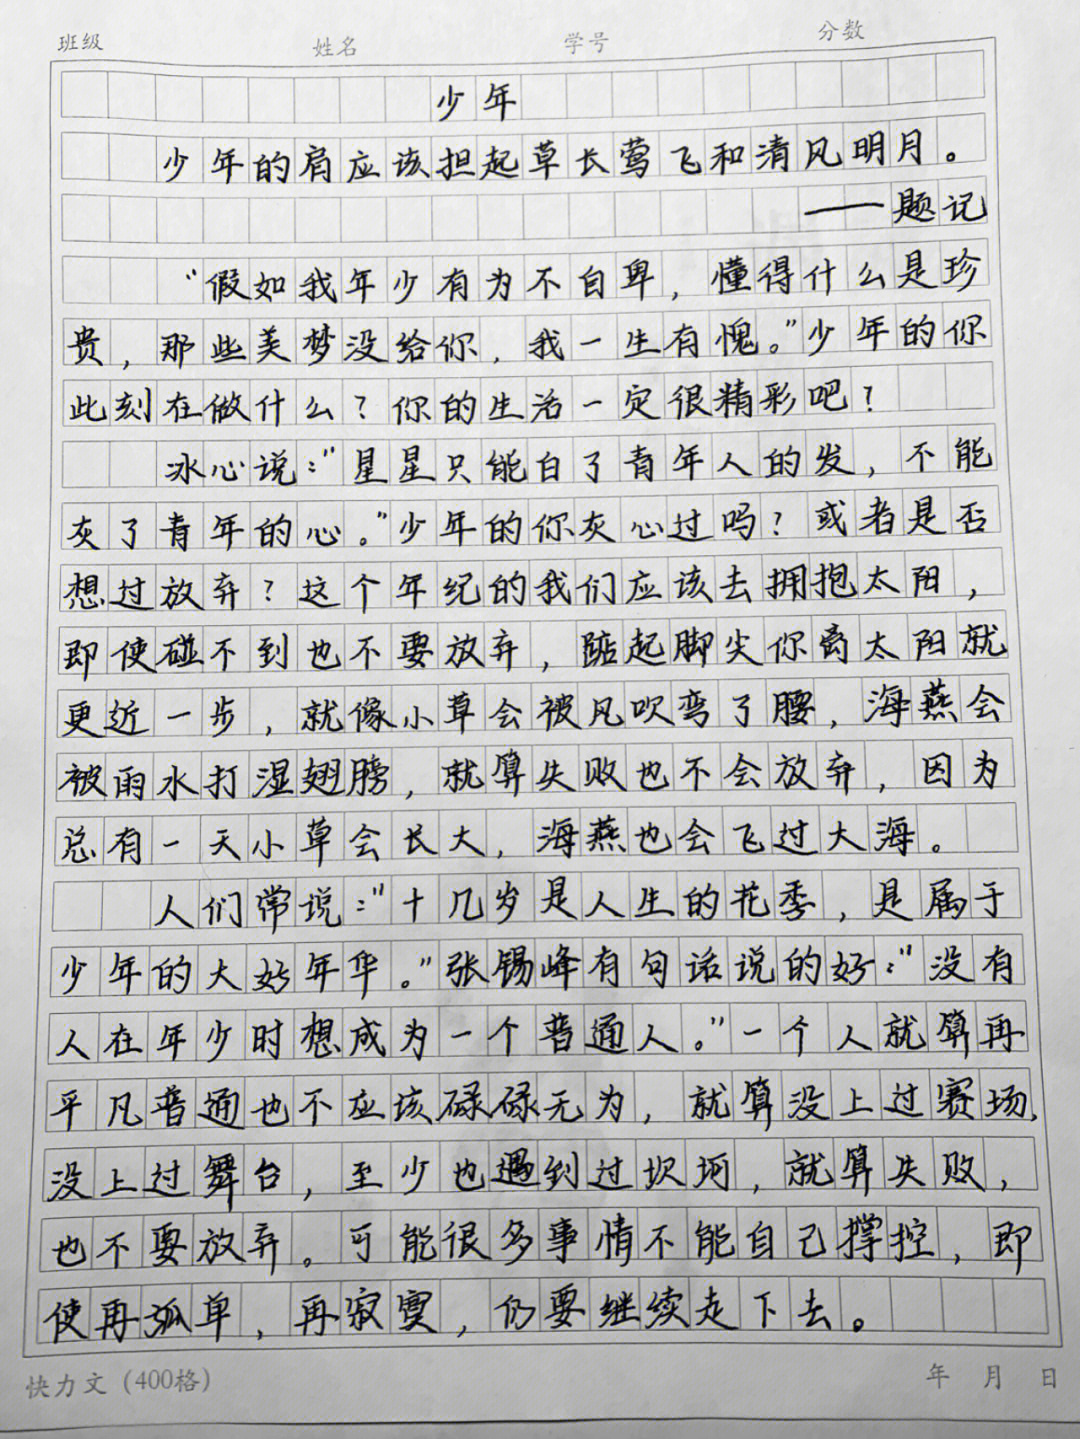 班级 姓名 学号 分数
少年
少年的肩应该担起草长莺飞和清风明月。
——题记
“假如我年少有为不自卑，懂得什么是珍
贵，那些美梦没给你，我一生有愧。”少年的你
此刻在做什么？你的生活一定很精彩吧？
冰心说：“星星只能白了青年人的发，不能
灰了青年的心。”少年的你灰心过吗？或者是否
想过放弃？这个年纪的我们应该去拥抱太阳，
即使碰不到也不要放弃，踮起脚尖你离太阳就
更近一步，就像小草会被风吹弯了腰，海燕会
被雨水打湿翅膀，就算失败也不会放弃，因为
总有一天小草会长大，海燕也会飞过大海。
人们常说：“十几岁是人生的花季，是属于
少年的大好年华。”张锡峰有句话说的好：“没有
人在年少时想成为一个普通人。”一个人就算再
平凡普通也不应该碌碌无为，就算没上过赛场，
没上过舞台，至少也遇到过坎坷，就算失败，
也不要放弃。可能很多事情不能自己撑控，即
使再孤单，再寂寞，仍要继续走下去。
快力文（400格） 年 月 日